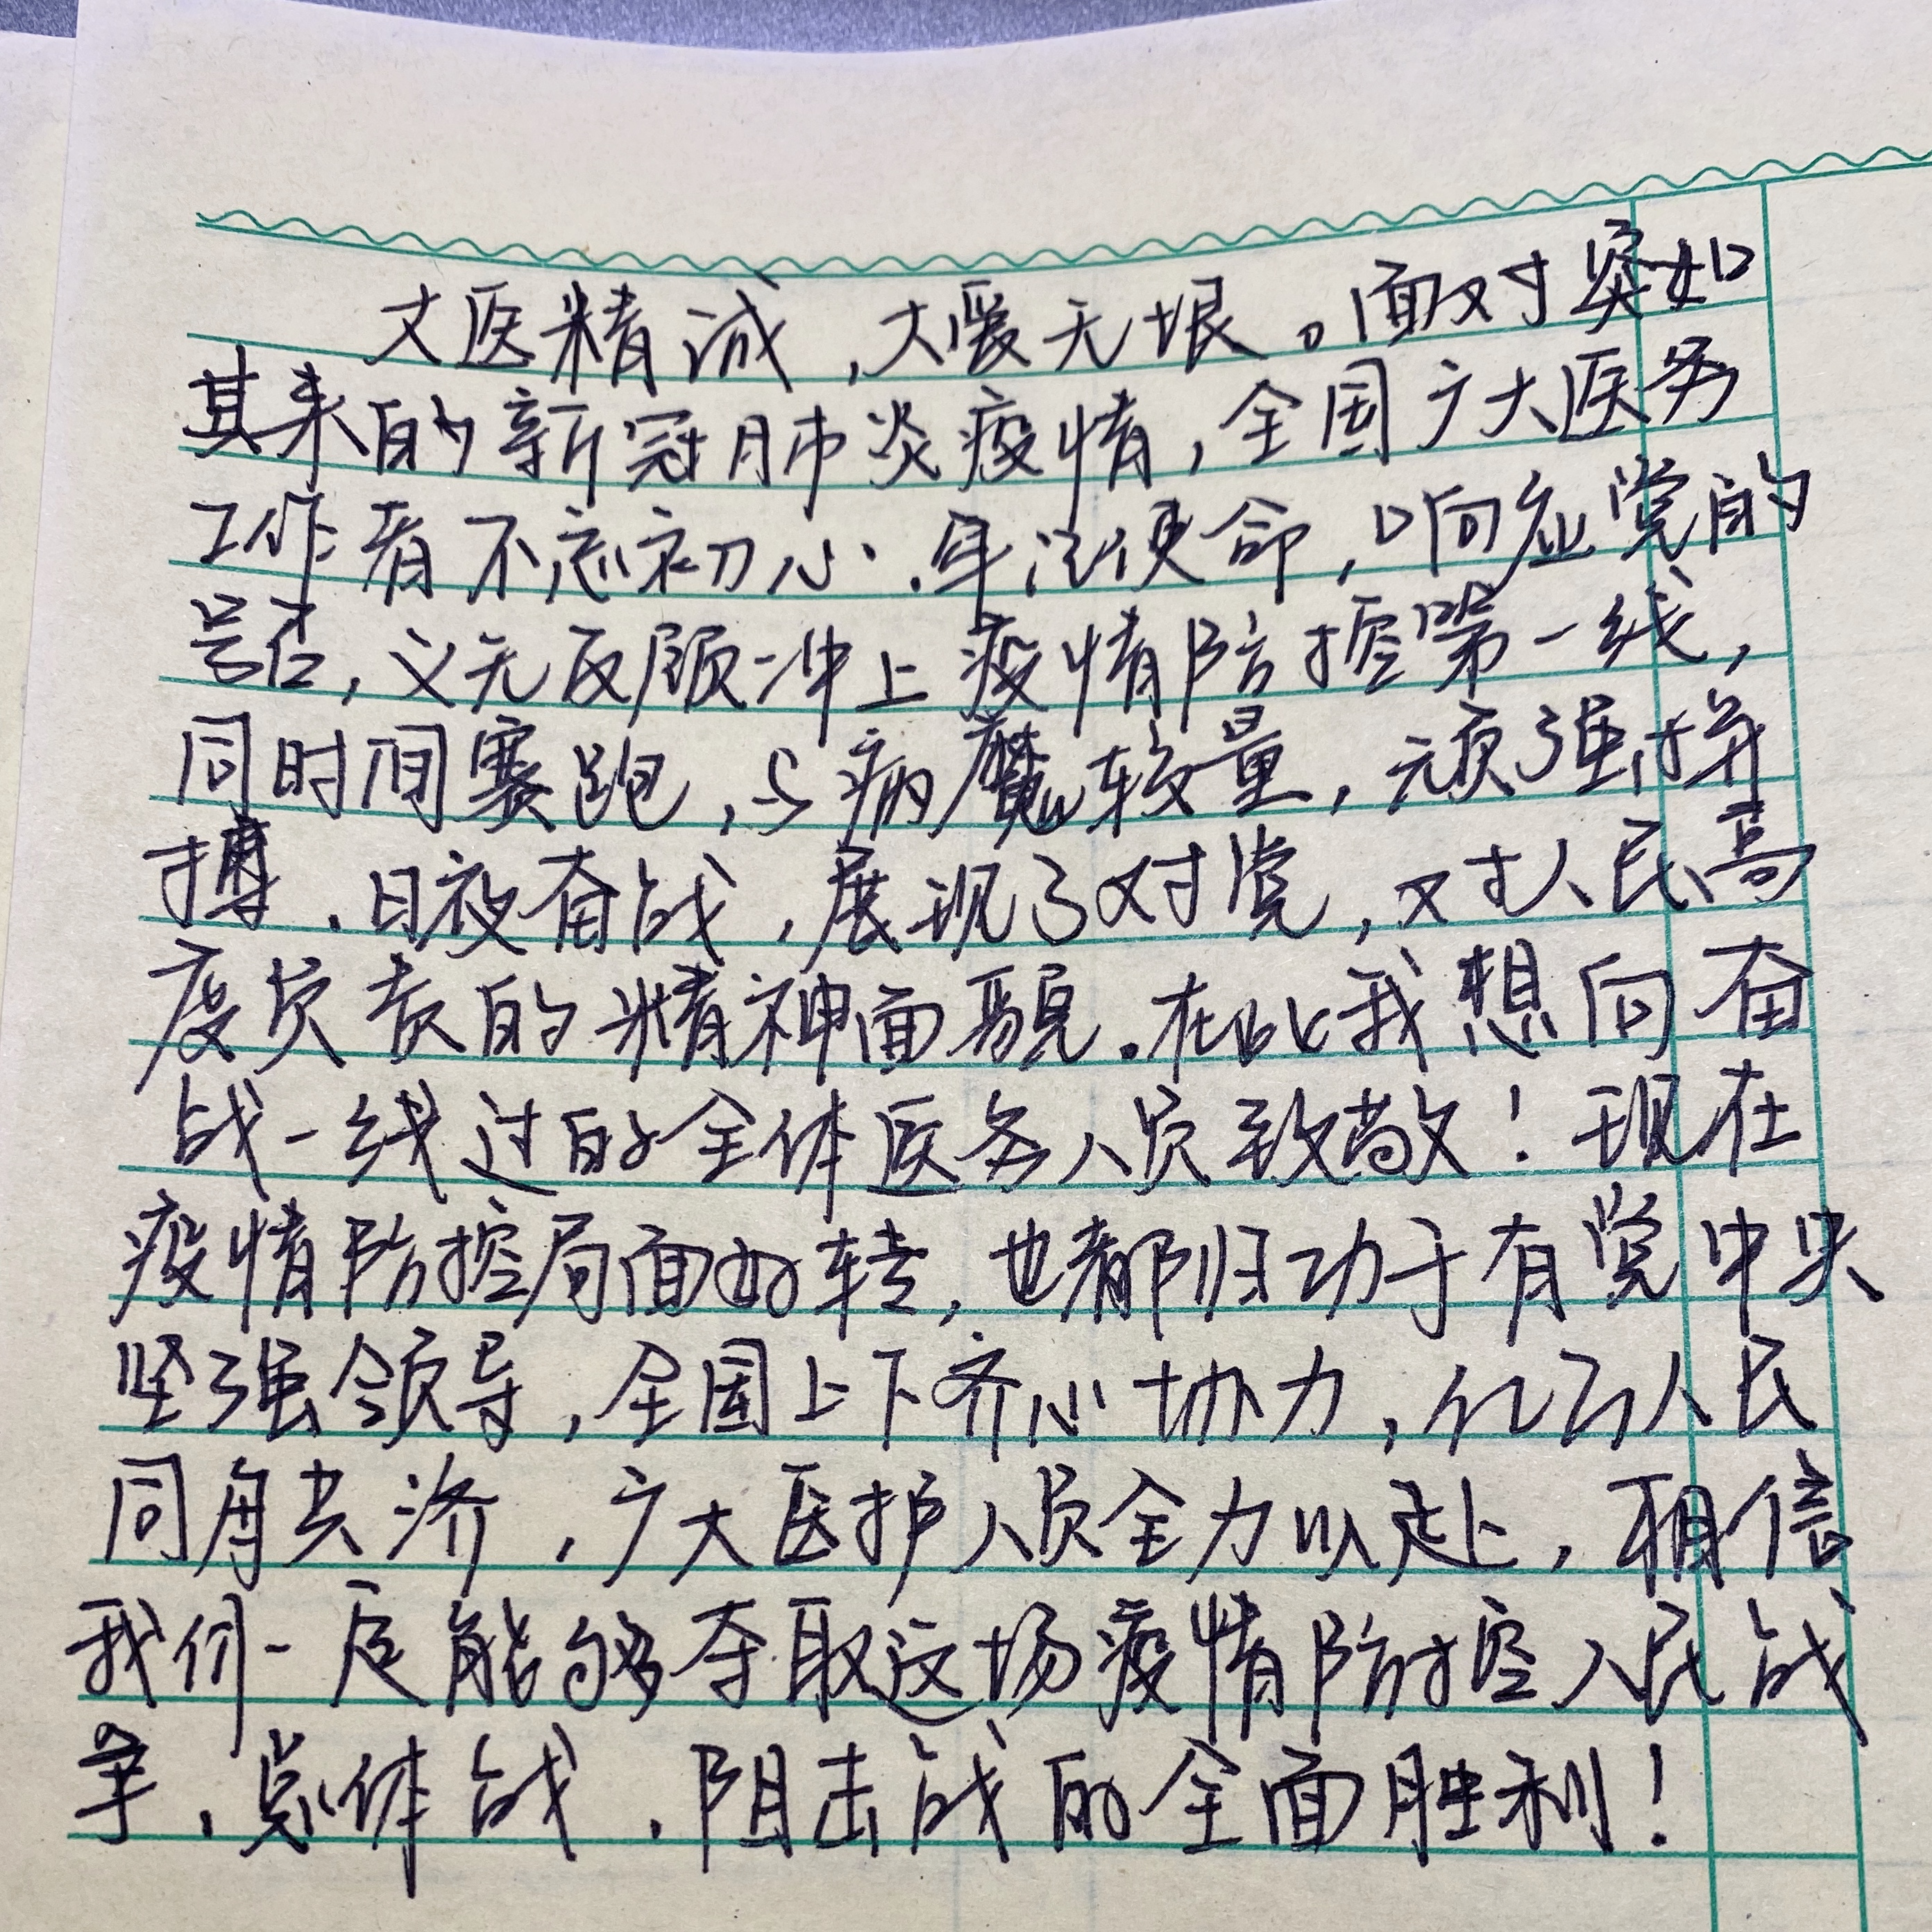 大医精诚,大爱无垠。面对突如
其来的新冠肺炎疫情,全国广大医务
工作者不忘初心、牢记使命,响应党的
号召,义无反顾冲上疫情防控第一线,
同时间赛跑,与病魔较量,顽强拼
搏、日夜奋战,展现了对党,对人民高
度负责的精神面貌。在此我想向奋
战一线过的全体医务人员致敬!现在
疫情防控局面好转,也都归功于有党中央
坚强领导,全国上下齐心协力,亿万人民
同舟共济,广大医护人员全力以赴,相信
我们一定能够夺取这场疫情防控人民战
争、总体战、阻击战的全面胜利!